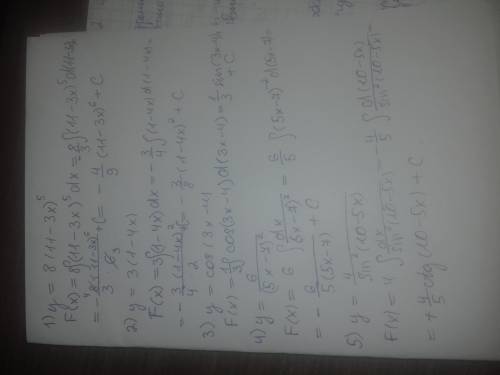 1) y = 8(11-3x)^5
F(x) = 8∫(11-3x)^5 dx = -8/3 ∫(11-3x)^5 d(11-3x)
= -8(11-3x)^6/(3·6) + C = -4/9 (11-3x)^6 + C
2) y = 3(1-4x)
F(x) = 3∫(1-4x)dx = -3/4 ∫(1-4x)d(1-4x) =
= -3/4 (1-4x)^2/2 + C = -3/8 (1-4x)^2 + C
3) y = cos(3x-4)
F(x) = 1/3 ∫cos(3x-4)d(3x-4) = 1/3 sin(3x-4) + C
4) y = 6/(5x-7)^2
F(x) = 6∫dx/(5x-7)^2 = 6/5 ∫(5x-7)^-2 d(5x-7) =
= -6/(5(5x-7)) + C
5) y = 4/sin^2(10-5x)
F(x) = 4∫dx/sin^2(10-5x) = -4/5 ∫d(10-5x)/sin^2(10-5x)
= +4/5 ctg(10-5x) + C